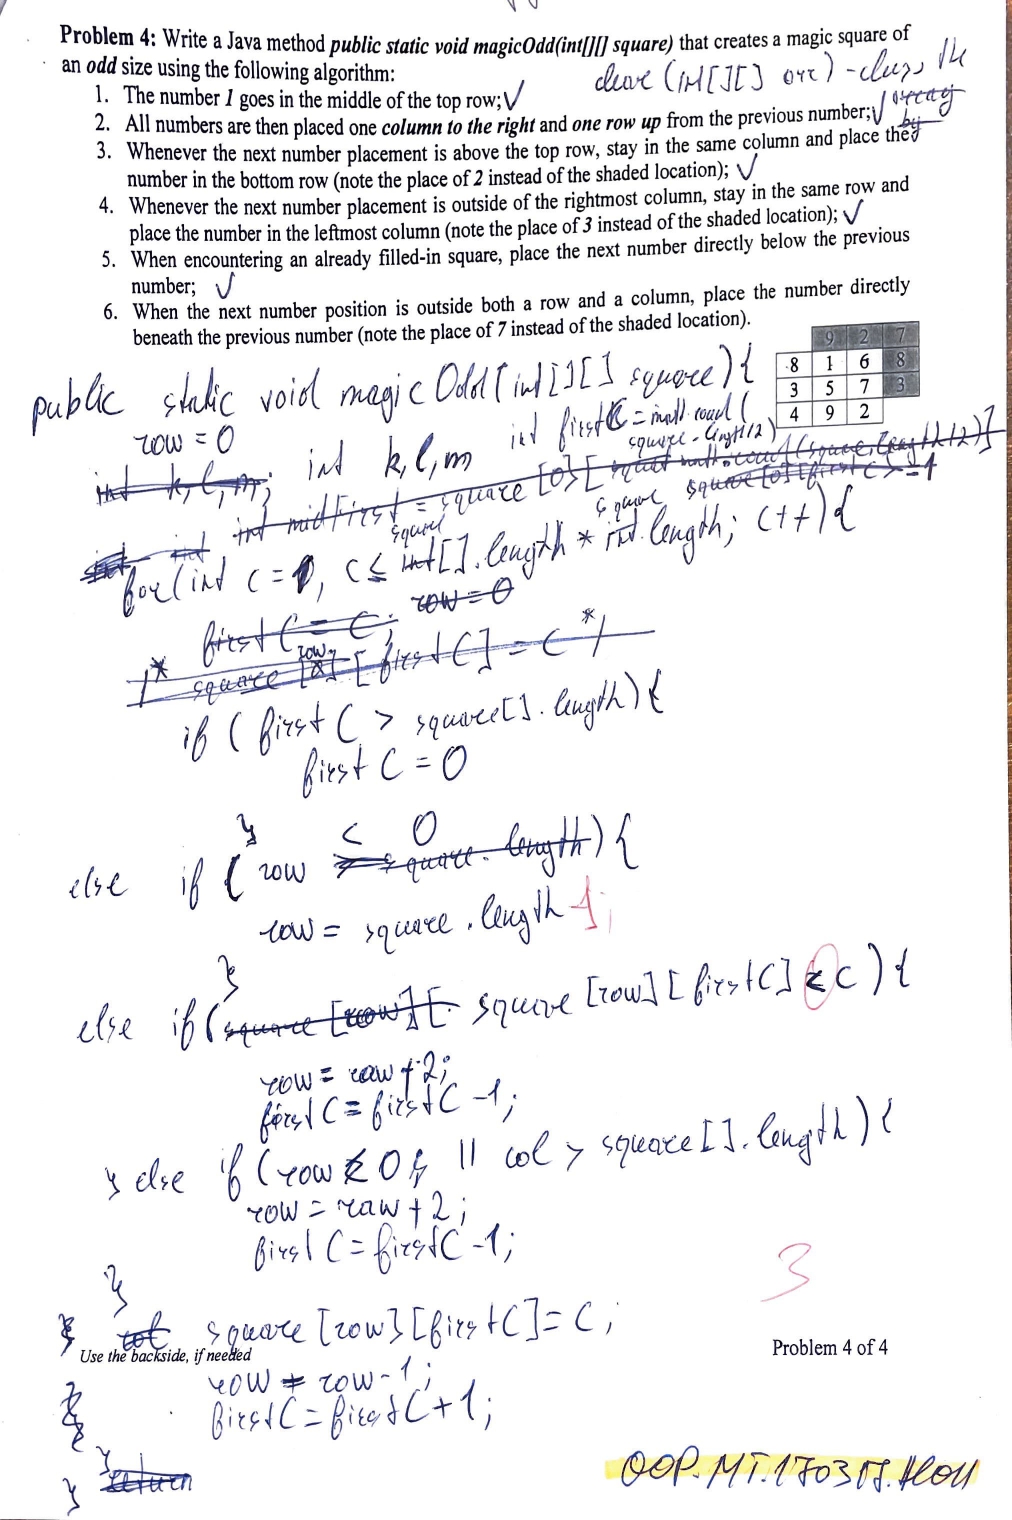 Problem 4: Write a Java method public static void magicOdd(int[][] square) that creates a magic square of
an odd size using the following algorithm:
cleare (int[][] arr) - clears the array
1. The number 1 goes in the middle of the top row; √
2. All numbers are then placed one column to the right and one row up from the previous number; √
by
3. Whenever the next number placement is above the top row, stay in the same column and place the
number in the bottom row (note the place of 2 instead of the shaded location); √
4. Whenever the next number placement is outside of the rightmost column, stay in the same row and
place the number in the leftmost column (note the place of 3 instead of the shaded location); √
5. When encountering an already filled-in square, place the next number directly below the previous
number; √
6. When the next number position is outside both a row and a column, place the number directly
beneath the previous number (note the place of 7 instead of the shaded location).
9 2 7
8 1 6 8
3 5 7 3
4 9 2
public static void magicOdd(int[][] square){
row = 0
int k, l, m; int k, l, m int firstC = math.round(
square.length/2)
int midFirst = square[0][math.round(square.length/2)]
square[0][firstC] = 1
for(int c = 1, c ≤ square[].length * square.length; c++){
row = 0
firstC = C;
/* square[row][firstC] = C */
if (firstC > square[].length){
firstC = 0
}
else if (row < 0 square.length){
row = square.length -1;
}
else if(square[row][ square[row][firstC] < c){
row = row + 2;
firstC = firstC -1;
} else if (row < 0 || col > square[].length){
row = raw + 2;
firstC = firstC -1;
3
}
square[row][firstC] = C;
Use the backside, if needed
Problem 4 of 4
row = row - 1;
firstC = firstC + 1;
}
} return
}
OOP.MT.170317.